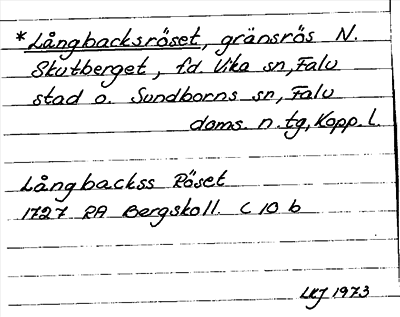 *Långbacksröset, gränsrös N.
Skutberget, f.d. Vika sn, Falu
stad o. Sundborns sn, Falu
doms. n. tg, Kopp. l.
Långbackss Röset
1727 RA Bergskoll. C 10 b
LKJ 1973